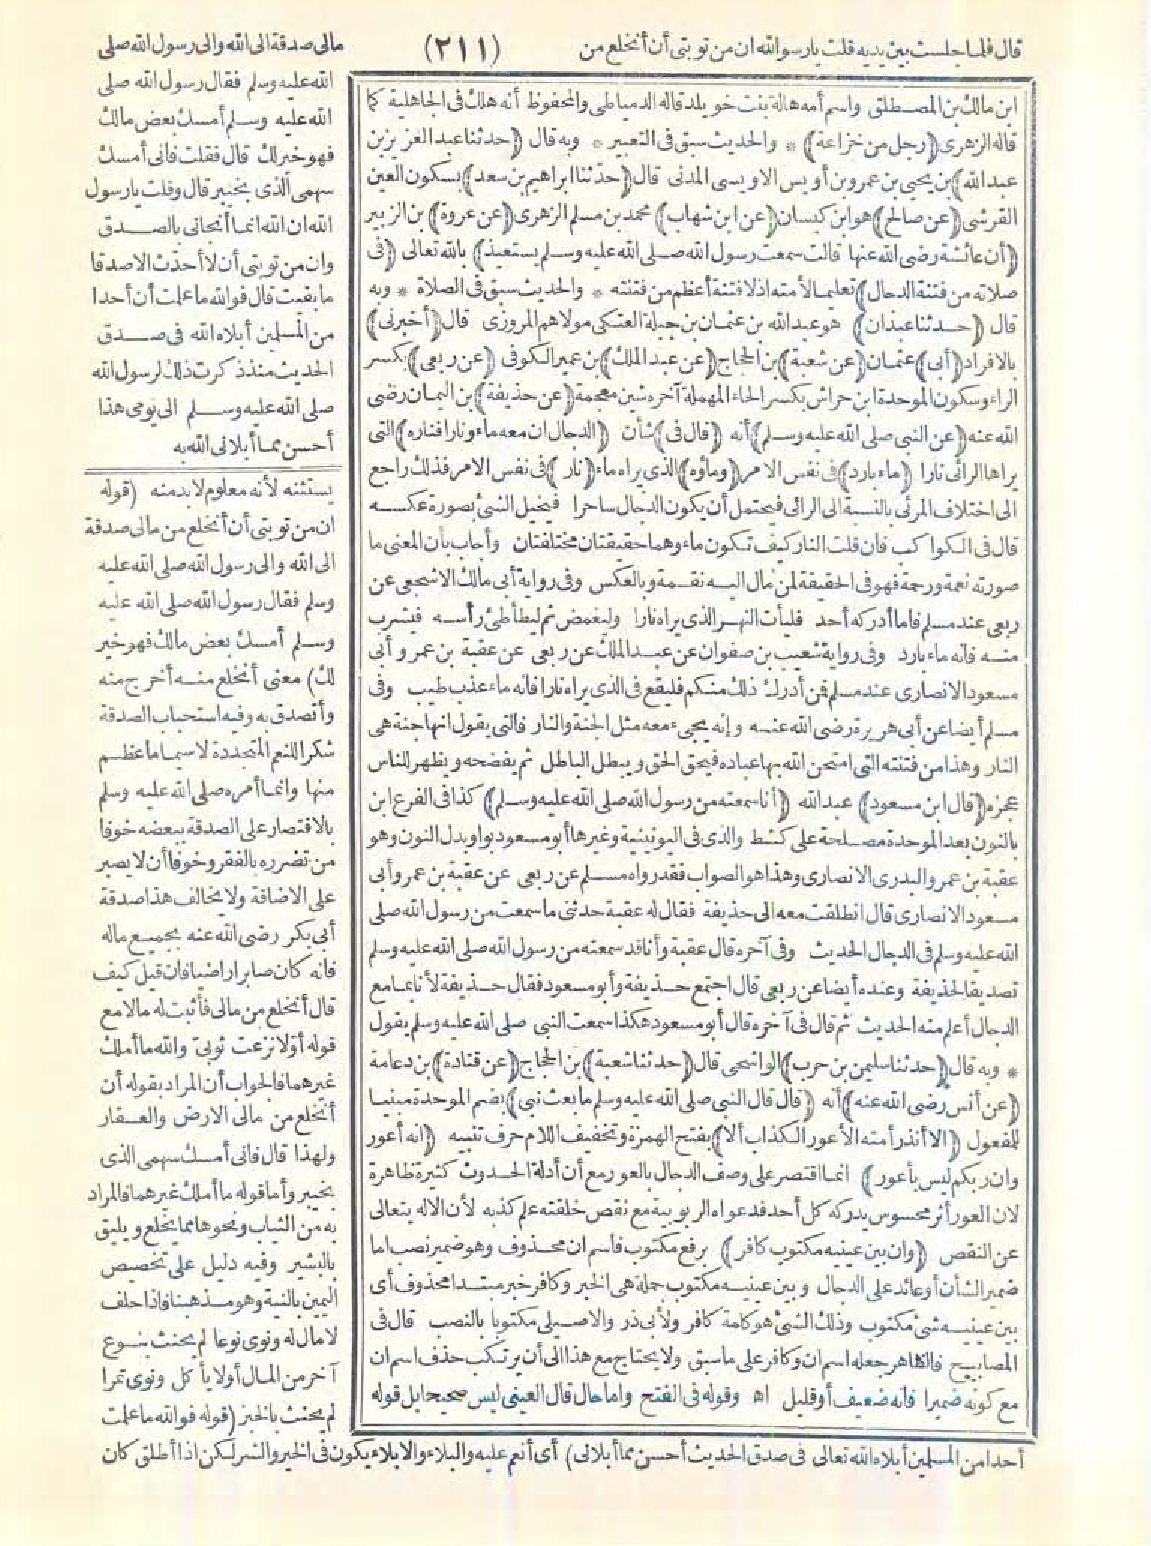 قال فلما جلست بين يديه قلت يارسول الله ان من توبتى أن أنخلع من
(٢١١)
مالى صدقة الى الله والى رسول الله صلى
الله عليه وسلم فقال رسول الله صلى
الله عليه وسلم أمسك بعض مالك
فهو خير لك قال فقلت فانى أمسك
سهمى الذى بخيبر قال وقلت يارسول
الله ان الله انما أنجانى بالصدق
وان من توبتى أن لا أحدث الا صدقا
ما بقيت قال فوالله ما علمت أن أحدا
من المسلمين أبلاه الله فى صدق
الحديث منذ ذكرت ذلك لرسول الله
صلى الله عليه وسلم الى يومى هذا
أحسن مما أبلانى الله به
ابن مالك بن المصطلق واسم أمه هالة بنت خويلد قاله الدمياطى والمحفوظ أنه هلك فى الجاهلية كما
قاله الزهرى (رجل من خزاعة) * والحديث سبق فى التعبير * وبه قال (حدثنا عبد العزيز بن
عبد الله) بن يحيى بن عمرو بن أويس الاويسى المدنى قال (حدثنا ابراهيم بن سعد) بسكون العين
القرشى (عن صالح) هو ابن كيسان (عن ابن شهاب) محمد بن مسلم الزهرى (عن عروة) بن الزبير
(أن عائشة رضى الله عنها قالت سمعت رسول الله صلى الله عليه وسلم يستعيذ) بالله تعالى (فى
صلاته من فتنة الدجال) تعليما لأمته اذ لا فتنة أعظم من فتنته * والحديث سبق فى الصلاة * وبه
قال (حدثنا عبدان) هو عبد الله بن عثمان بن جبلة العتكى مولاهم المروزى قال (أخبرنى)
بالافراد (أبى) عثمان (عن شعبة) بن الحجاج (عن عبد الملك) بن عمير الكوفى (عن ربعى) بكسر
الراء وسكون الموحدة ابن حراش بكسر الحاء المهملة آخره شين معجمة (عن حذيفة) بن اليمان رضى
الله عنه (عن النبى صلى الله عليه وسلم) أنه (قال فى) شأن (الدجال ان معه ماء ونارا فناره) التى
يراها الرائى نارا (ماء بارد) فى نفس الامر (وماؤه) الذى يراه ماء (نار) فى نفس الامر فذلك راجع
الى اختلاف المرئى بالنسبة الى الرائى فيحتمل أن يكون الدجال ساحرا فيخيل الشئ بصورة عكسه
قال فى الكواكب فان قلت النار كيف تكون ماء وهما حقيقتان مختلفتان وأجاب بأن المعنى ما
صورته نعمة ورحمة فهو فى الحقيقة لمن مال اليه نقمة وبالعكس وفى رواية أبى مالك الاشجعى عن
ربعى عند مسلم فاما أدركه أحد فليأت النهر الذى يراه نارا وليغمض ثم ليطأطئ رأسه فيشرب
منه فانه ماء بارد وفى رواية شعيب بن صفوان عن عبد الملك عن ربعى عن عقبة بن عمرو أبى
مسعود الانصارى عند مسلم فمن أدرك ذلك منكم فليقع فى الذى يراه نارا فانه ماء عذب طيب وفى
مسلم أيضا عن أبى هريرة رضى الله عنه وإنه يجىء معه مثل الجنة والنار فالتى يقول انها جنة هى
النار وهذا من فتنته التى امتحن الله بها عباده فيحق الحق ويبطل الباطل ثم يفضحه ويظهر للناس
عجزه (قال ابن مسعود) عبد الله (أنا سمعته من رسول الله صلى الله عليه وسلم) كذا فى الفرع ابن
بالنون بعد الموحدة مصلحة على كشط والذى فى اليونينية وغيرها أبو مسعود بواو بدل النون وهو
عقبة بن عمرو البدرى الانصارى وهذا هو الصواب فقد رواه مسلم عن ربعى عن عقبة بن عمرو أبى
مسعود الانصارى قال انطلقت معه الى حذيفة فقال له عقبة حدثنى ما سمعت من رسول الله صلى
الله عليه وسلم فى الدجال الحديث وفى آخره قال عقبة وأنا قد سمعته من رسول الله صلى الله عليه وسلم
تصديقا لحذيفة وعنده أيضا عن ربعى قال اجتمع حذيفة وأبو مسعود فقال حذيفة لأنا بما مع
الدجال أعلم منه الحديث ثم قال فى آخره قال أبو مسعود هكذا سمعت النبى صلى الله عليه وسلم يقول
* وبه قال (حدثنا سليمن بن حرب) الواشحى قال (حدثنا شعبة) بن الحجاج (عن قتادة) بن دعامة
(عن أنس رضى الله عنه) أنه (قال قال النبى صلى الله عليه وسلم ما بعث نبى) بضم الموحدة مبنيا
للمفعول (الا أنذر أمته الأعور الكذاب ألا) بفتح الهمزة وتخفيف اللام حرف تنبيه (انه أعور
وان ربكم ليس بأعور) انما اقتصر على وصف الدجال بالعور مع أن أدلة الحدوث كثيرة ظاهرة
لان العور أثر محسوس يدركه كل أحد فدعواه الربوبية مع نقص خلقته علم كذبه لأن الاله يتعالى
عن النقص (وان بين عينيه مكتوب كافر) برفع مكتوب فاسم ان محذوف وهو ضمير نصب اما
ضمير الشأن أو عائد على الدجال وبين عينيه مكتوب جملة هى الخبر وكافر خبر مبتدا محذوف أى
بين عينيه شئ مكتوب وذلك الشئ هو كلمة كافر ولأبى ذر والاصيلى مكتوبا بالنصب قال فى
المصابيح فالظاهر جعله اسم ان وكافر على ما سبق ولا يحتاج مع هذا الى أن يرتكب حذف اسم ان
مع كونه ضميرا فانه ضعيف أو قليل اه وقوله فى الفتح واما حال قال العينى ليس صحيحا بل قوله
يستثنه لأنه معلوم لا بد منه (قوله
ان من توبتى أن أنخلع من مالى صدقة
الى الله والى رسول الله صلى الله عليه
وسلم فقال رسول الله صلى الله عليه
وسلم أمسك بعض مالك فهو خير
لك) معنى أنخلع منه أخرج منه
وأتصدق به وفيه استحباب الصدقة
شكرا للنعم المتجددة لا سيما ما عظم
منها وانما أمره صلى الله عليه وسلم
بالاقتصار على الصدقة ببعضه خوفا
من تضرره بالفقر وخوفا أن لا يصبر
على الاضاقة ولا يخالف هذا صدقة
أبى بكر رضى الله عنه بجميع ماله
فانه كان صابرا راضيا فان قيل كيف
قال أنخلع من مالى فأثبت له مالا مع
قوله أولا نزعت ثوبى والله ما أملك
غيرهما فالجواب أن المراد بقوله أن
أنخلع من مالى الارض والعقار
ولهذا قال فانى أمسك سهمى الذى
بخيبر وأما قوله ما أملك غيرهما فالمراد
به من الثياب ونحوها مما يخلع ويليق
بالبشير وفيه دليل على تخصيص
اليمين بالنية وهو مذهبنا فاذا حلف
لا مال له ونوى نوعا لم يحنث بنوع
آخر من المال أو لا يأكل ونوى تمرا
لم يحنث بالخبز (قوله فوالله ما علمت
أحدا من المسلمين أبلاه الله تعالى فى صدق الحديث أحسن مما أبلانى) أى أنعم عليه والبلاء والابلاء يكون فى الخير والشر لكن اذا أطلق كان